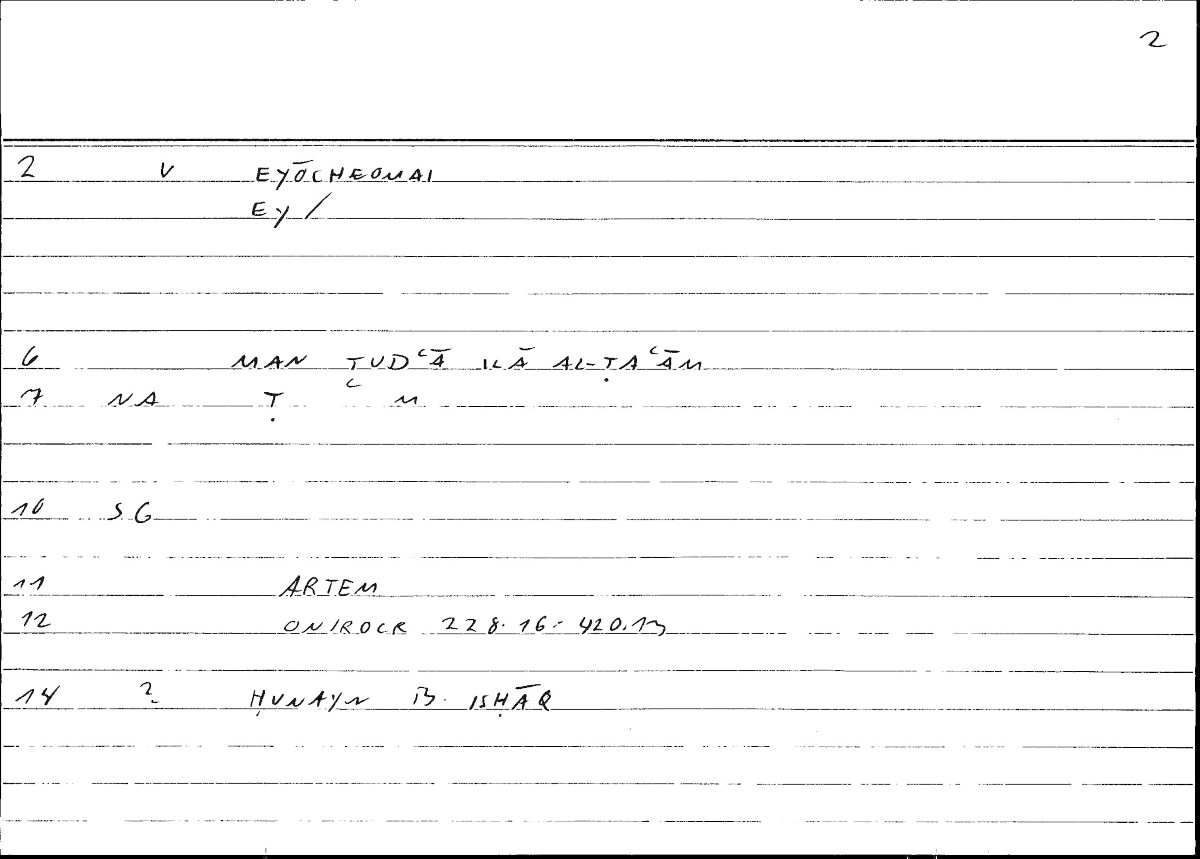 2
2 V EYŌCHEOMAI
EY /
6 MAN TUDʿĀ ILĀ AL-ṬAʿĀM
7 NA Ṭ ʿ M
10 SG
11 ARTEM
12 ONIROCR 228.16 - 420.13
14 ? ḤUNAYN B. ISḤĀQ